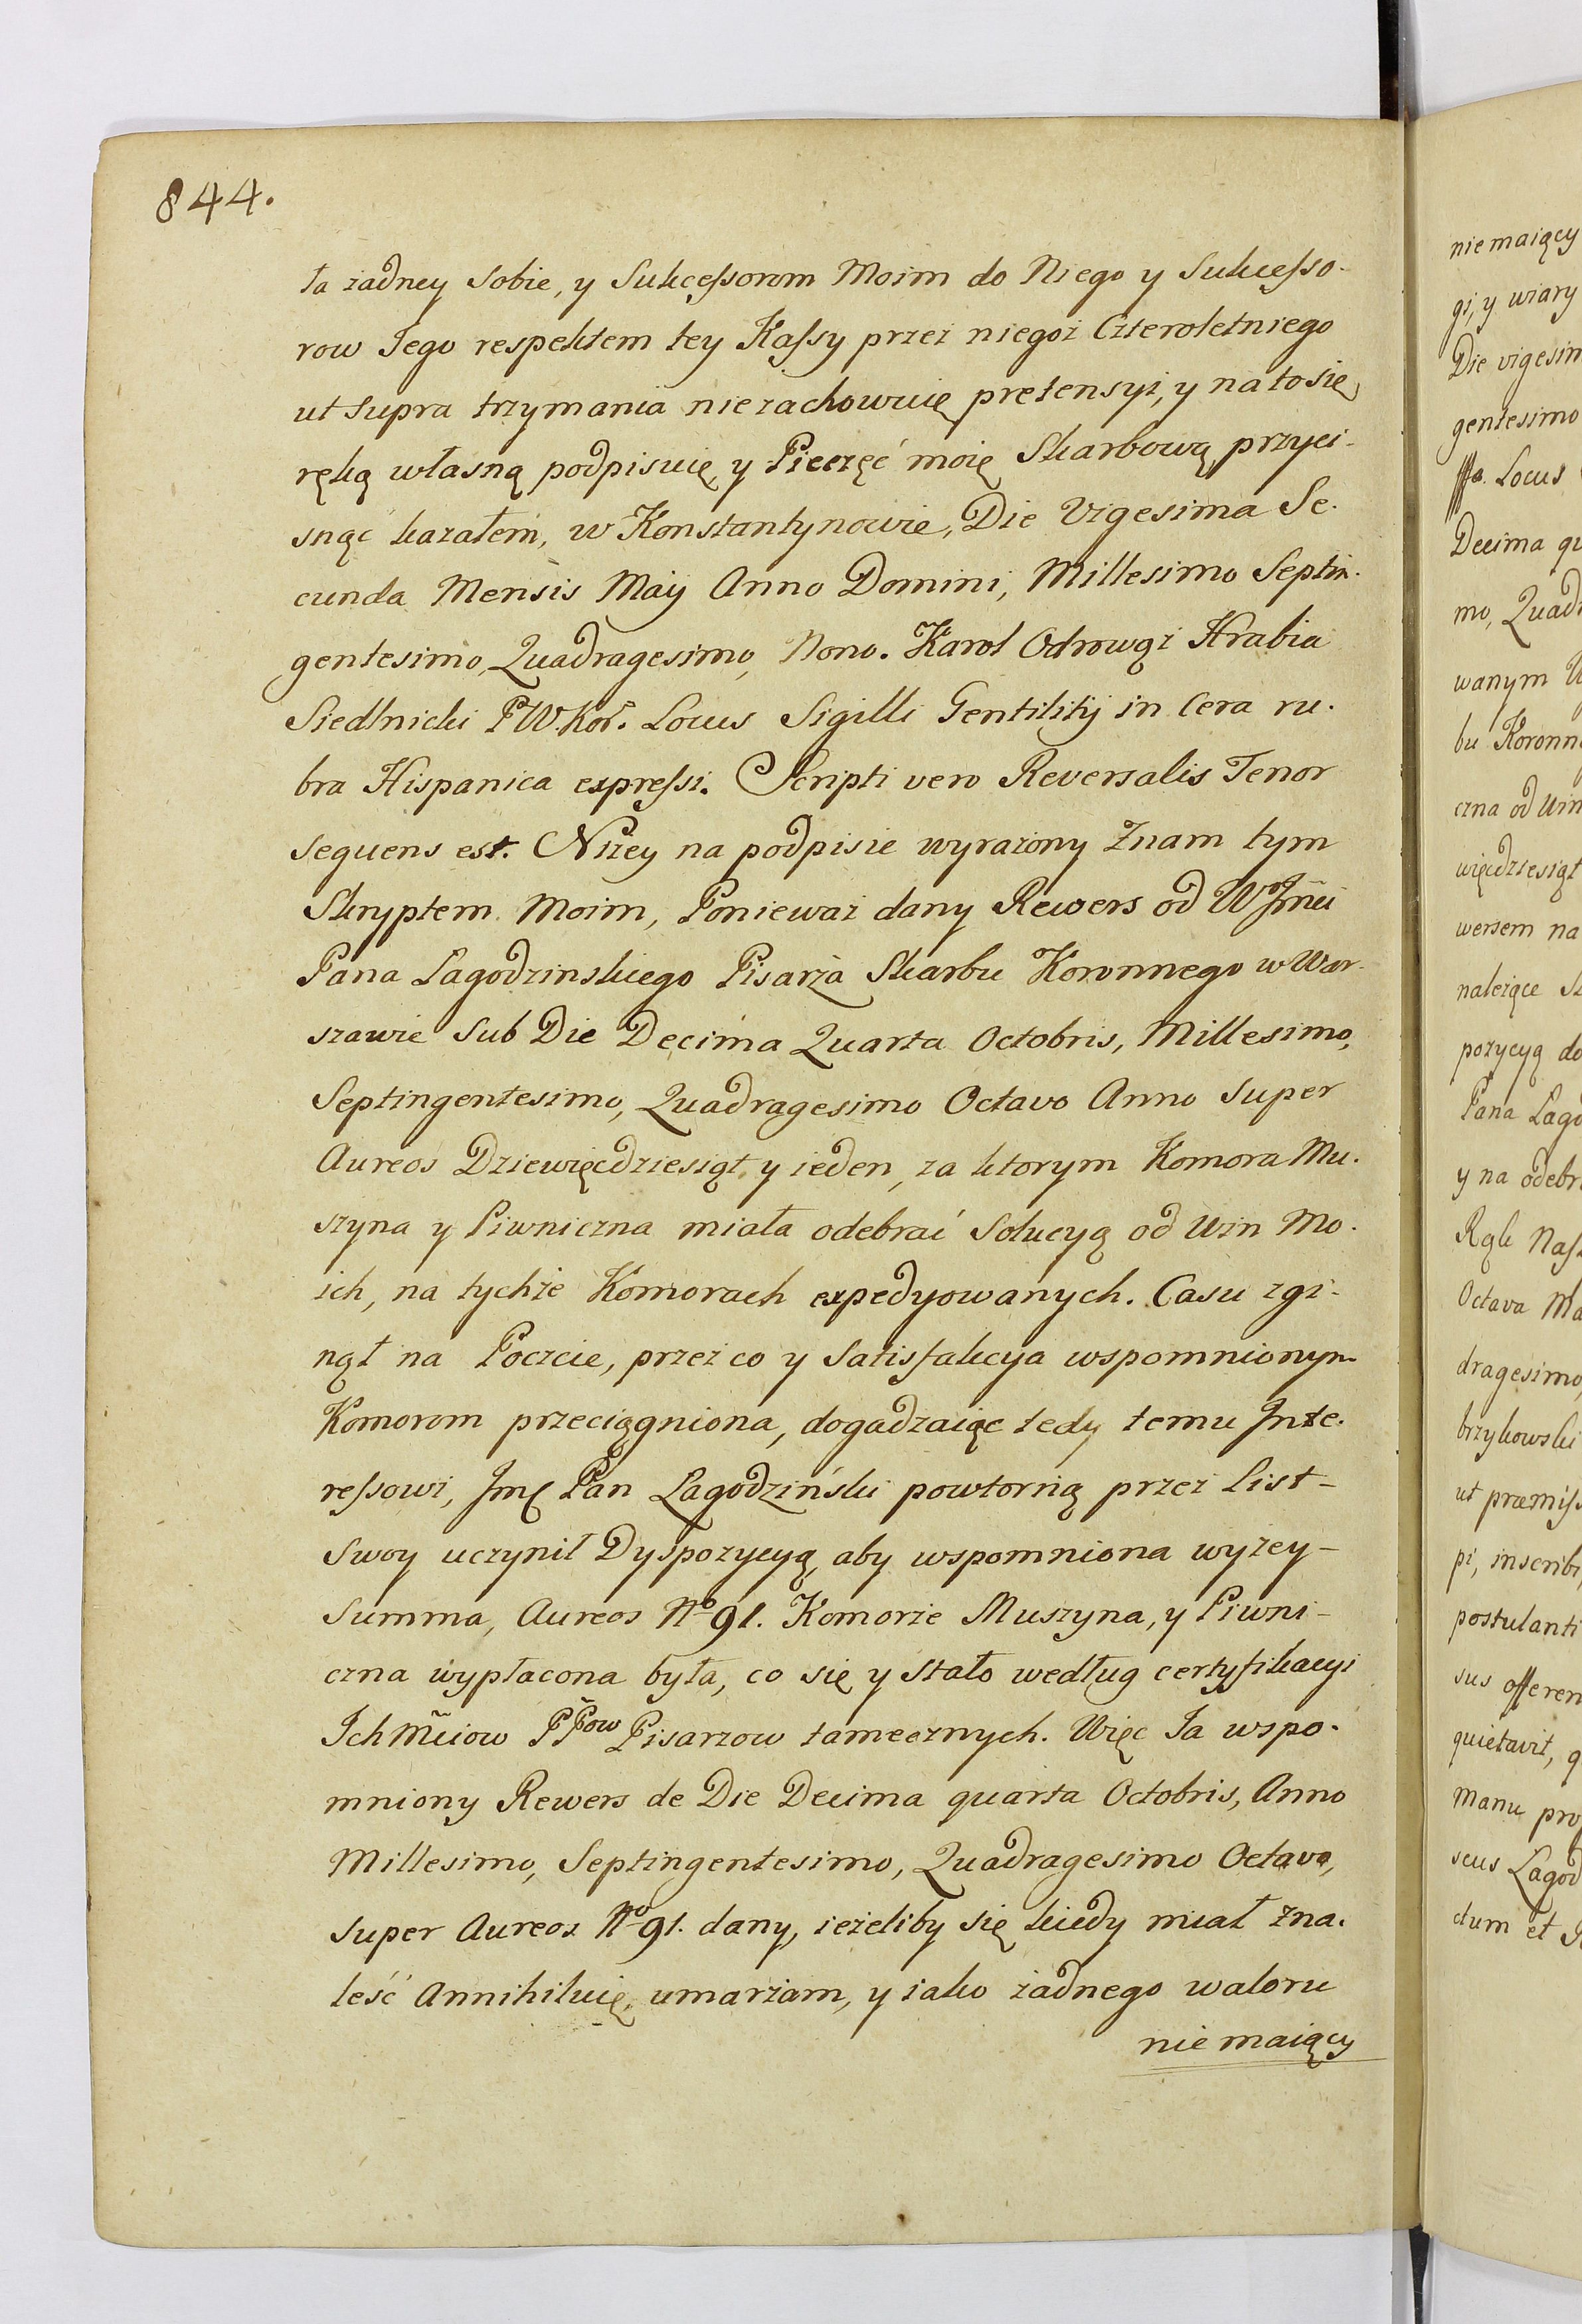 844.
ta żadney Sobie, y Sukcessorom Moim do Niego y Sukcesso-
row Jego respektem tey Kassy przez niegoż Czteroletniego
ut supra trzymania nie zachowuię pretensyi, y na to się
ręką własną podpisuię y Pieczęć moię Skarbową przyci-
snąć kazałem, w Konstantynowie, Die Vigesima Se-
cunda Mensis Maÿ Anno Domini, Millesimo Septin-
gentesimo, Quadragesimo, Nono. Karol Odrowąż Hrabia
Siedlnicki PW.Kor. Locus Sigilli Gentilitÿ in Cera ru-
bra Hispanica expressi. Scripti vero Reversalis Tenor
sequens est. Niżey na podpisie wyrażony Znam tym
Skryptem Moim, Ponieważ dany Rewers od WJm̃ci
Pana Lagodzinskiego Pisarza Skarbu Koronnego w War-
szawie Sub Die Decima Quarta Octobris, Millesimo,
Septingentesimo, Quadragesimo Octavo Anno Super
Aureos Dziewięćdziesiąt y ieden, za ktorym Komora Mu-
szyna y Piwniczna miała odebrać Solucyą od Win Mo-
ich, na tychże Komorach expedyowanych. Casu zgi-
nął na Poczcie, przez co y Satisfakcya wspomnionym
Komorom przeciągniona, dogadzaiąc tedy temu Inte-
ressowi, Jmć Pan Lagodziński powtorną przez List-
Swoy uczynił Dyspozycyą, aby wspomniona wyżey-
Summa, Aureos No 91. Komorze Muszyna, y Piwni-
czna wypłacona była, co się y Stało według certyfikacyi
Ich Mc̃iow PPow Pisarzow tamecznych. Więc Ja wspo-
mniony Rewers de Die Decima quarta Octobris, Anno
Millesimo, Septingentesimo, Quadragesimo Octavo,
super Aureos No 91. dany, ieżeliby się kiedy miał zna-
leść Annihiluię, umarzam, y iako żadnego waloru
nie maiący
nie maiący
gi, y wiary
Die vigesim
gentesimo
Locus
Decima qu
mo, Quadr
wanym W
bu Koronn
czna od Win
więćdziesiąt
wersem na
należące Sk
pozycyą do
Pana Lago
y na odebr
Rąk Nas
Octava Ma
dragesimo,
brzykowski
ut præmiss
pi, inscribi,
postulanti
sus offeren
quietavit, q
Manu prop
seus Lagod
dum et